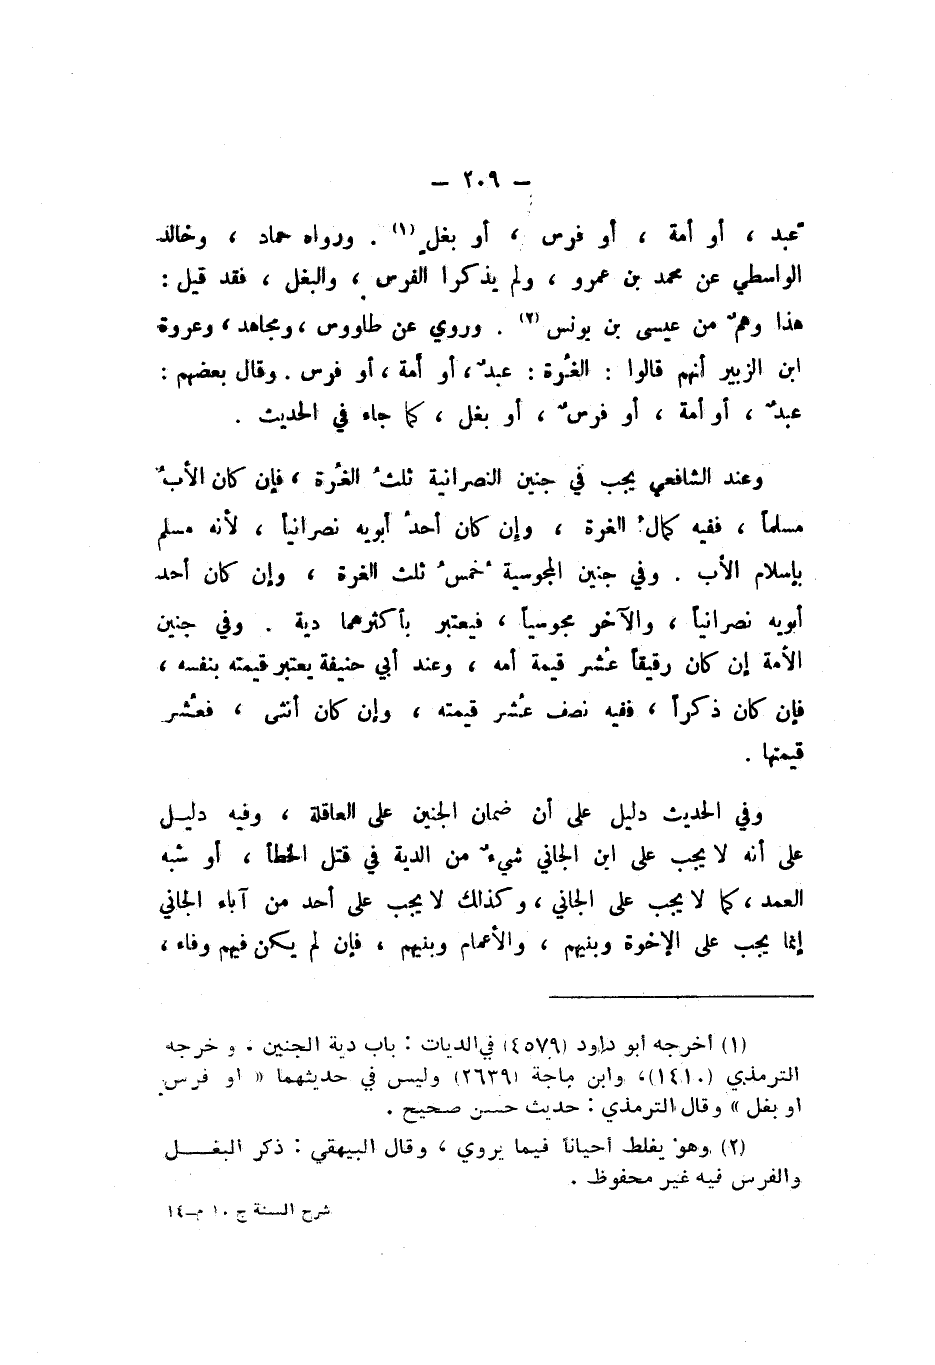 – ٢٠٩ –
عبد ، أو أمة ، أو فرس ، أو بغل (١) . ورواه حماد ، وخالد
الواسطي عن محمد بن عمرو ، ولم يذكرا الفرس ، والبغل ، فقد قيل :
هذا وهمٌ من عيسى بن يونس (٢) . وروي عن طاووس ، ومجاهد ، وعروة
ابن الزبير أنهم قالوا : الغُرة : عبدٌ ، أو أمة ، أو فرس . وقال بعضهم :
عبدٌ ، أو أمة ، أو فرسٌ ، أو بغل ، كما جاء في الحديث .
وعند الشافعي يجب في جنين النصرانية ثلثُ الغُرة ، فإن كان الأبُ
مسلماً ، ففيه كمالُ الغرة ، وإن كان أحدُ أبويه نصرانياً ، لأنه مسلم
بإسلام الأب . وفي جنين المجوسية خُمسُ ثلث الغرة ، وإن كان أحد
أبويه نصرانياً ، والآخر مجوسياً ، فيعتبر بأكثرهما دية . وفي جنين
الأمة إن كان رقيقاً عُشر قيمة أمه ، وعند أبي حنيفة يعتبر قيمته بنفسه ،
فإن كان ذكراً ، ففيه نصف عُشر قيمته ، وإن كان أنثى ، فعُشر
قيمتها .
وفي الحديث دليل على أن ضمان الجنين على العاقلة ، وفيه دليل
على أنه لا يجب على ابن الجاني شيءٌ من الدية في قتل الخطأ ، أو شبه
العمد ، كما لا يجب على الجاني ، وكذلك لا يجب على أحد من آباء الجاني
إنما يجب على الإخوة وبنيهم ، والأعمام وبنيهم ، فإن لم يكن فيهم وفاء ،
(١) أخرجه أبو داود (٤٥٧٩) في الديات : باب دية الجنين ، و خرجه
الترمذي (١٤١٠)، وابن ماجة (٢٦٣٩) وليس في حديثهما « او فرس
او بغل » وقال الترمذي : حديث حسن صحيح .
(٢) وهو يغلط أحياناً فيما يروي ، وقال البيهقي : ذكر البغل
والفرس فيه غير محفوظ .
شرح السنة ج ١٠ م-١٤